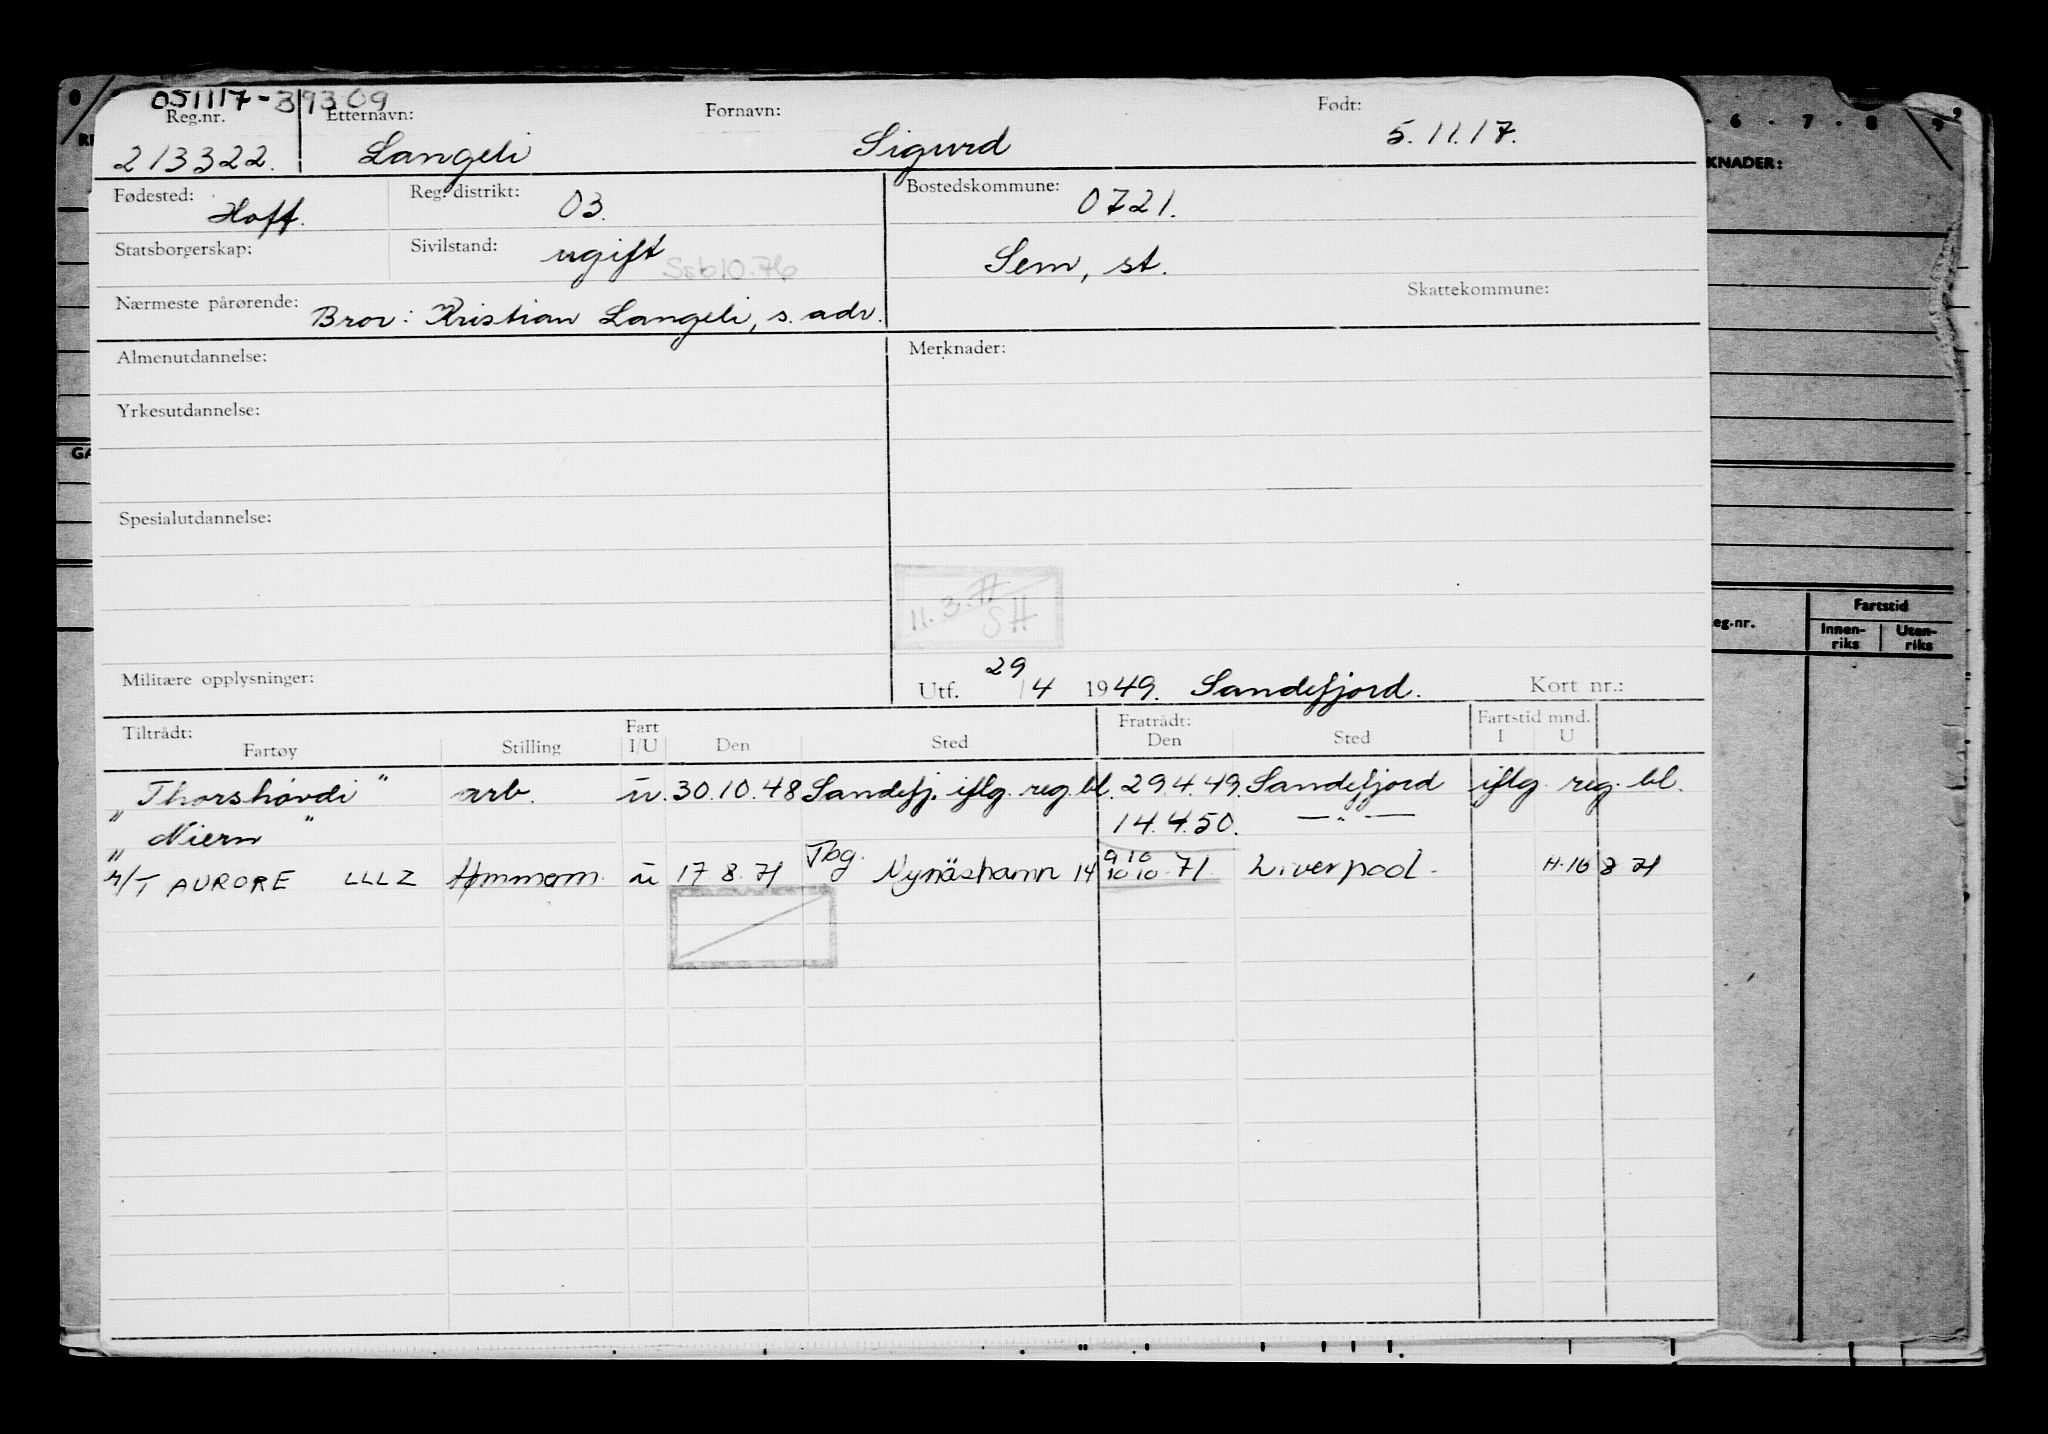 051117-39309
Reg.nr. Etternavn: Fornavn: Født:
213322. Langeli Sigurd 5.11.17.
Fødested: Hoff. Reg. distrikt: 03. Bostedskommune: 0721.
Statsborgerskap: Sivilstand: ugift Ssb 10.76 Sem, st.
Skattekommune:
Nærmeste pårørende: Bror: Kristian Langeli, s. adr.
Almenutdannelse: Merknader:
Yrkesutdannelse:
Spesialutdannelse:
11.3.77
SH
Militære opplysninger: Utf. 29/4 1949. Sandefjord. Kort nr.:
Tiltrådt: Fart Fratrådt: Fartstid mnd.
Fartøy Stilling I/U Den Sted Den Sted I U
"Thorshøvdi" arb. u. 30.10.48 Sandefj. iflg. reg. bl. 29.4.49. Sandefjord iflg. reg. bl.
" Niern " 14.4.50. —"—
M/T AURORE LLLZ u 17 8 71 Tbg. Nynäshamn 14 9 10 10 10 71 Liverpool. H. 16 8 71
6 · 7 · 8 9
KNADER:
eg.nr. Fartstid
Innen-riks Uten-riks